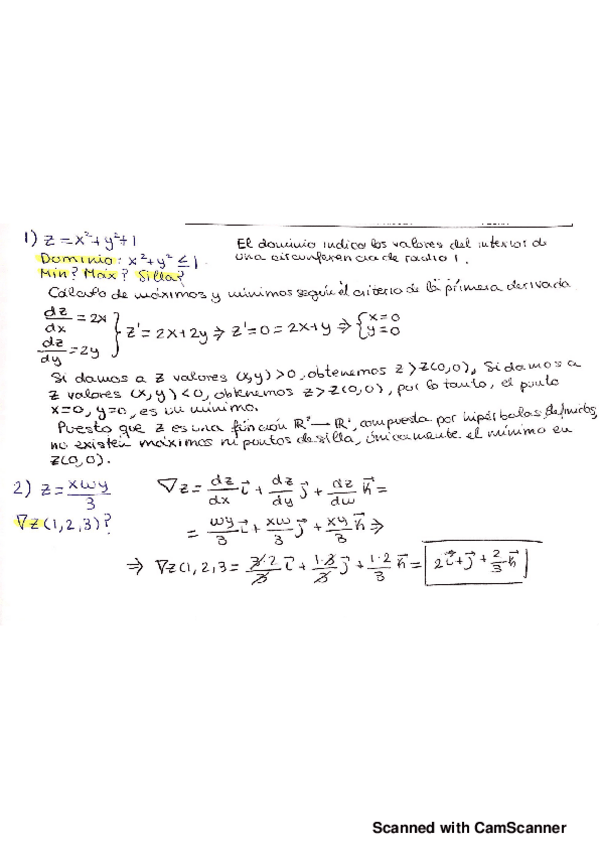 1) z = x²+y²+1
El dominio indica los valores del interior de
Dominio: x²+y² ≤ 1.
una circunferencia de radio 1.
Min? Máx? Silla?
Cálculo de máximos y mínimos según el criterio de la primera derivada
dz/dx = 2x
dz/dy = 2y
} z' = 2x+2y ⇒ z'=0 = 2x+y ⇒ { x=0 y=0
Si damos a z valores (x,y) > 0, obtenemos z > z(0,0). Si damos a
z valores (x,y) < 0, obtenemos z > z(0,0), por lo tanto, el punto
x=0, y=0, es un mínimo.
Puesto que z es una función compuesta por hipérbolas definidas,
no existen máximos ni puntos de silla, únicamente el mínimo en
z(0,0).
2) z = xwy/3
∇z = dz/dx i⃗ + dz/dy j⃗ + dz/dw k⃗ =
∇z(1,2,3)?
= wy/3 i⃗ + xw/3 j⃗ + xy/3 k⃗ ⇒
⇒ ∇z(1,2,3 = 3·2/3 i⃗ + 1·3/3 j⃗ + 1·2/3 k⃗ = 2i⃗ + j⃗ + 2/3 k⃗
Scanned with CamScanner